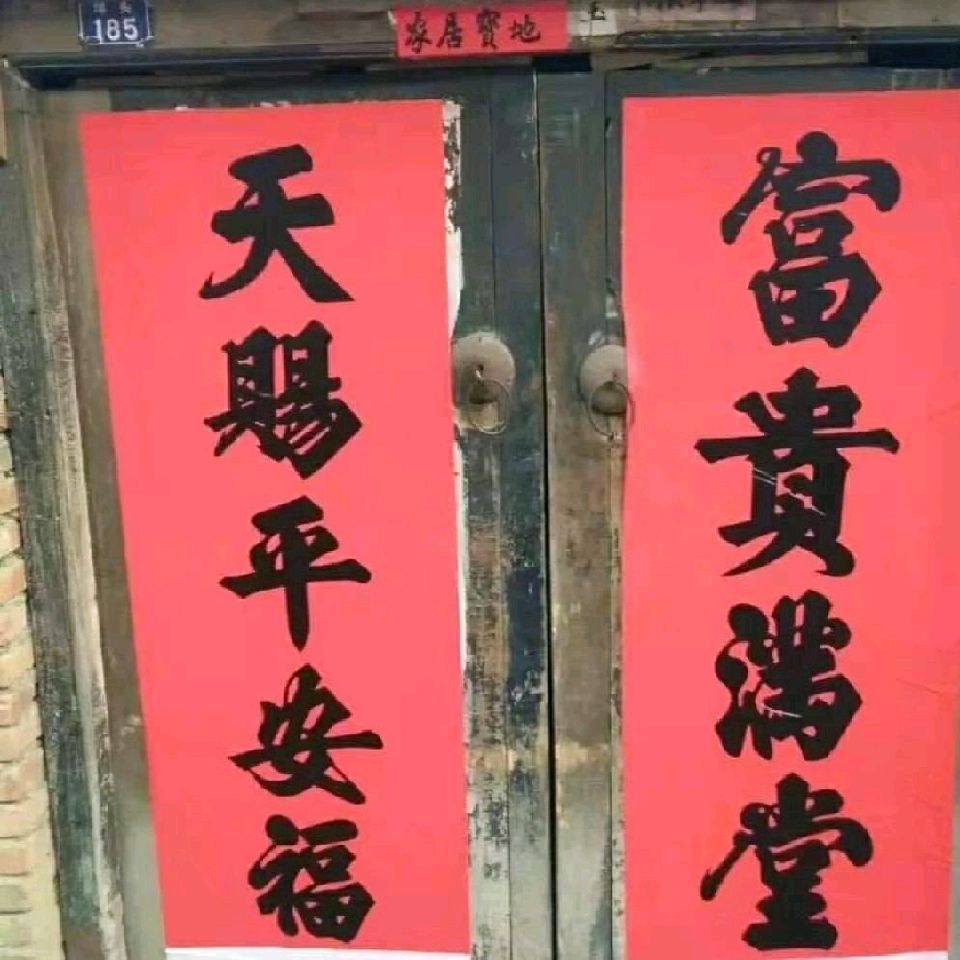 185
家居寶地
富貴滿堂
天賜平安福